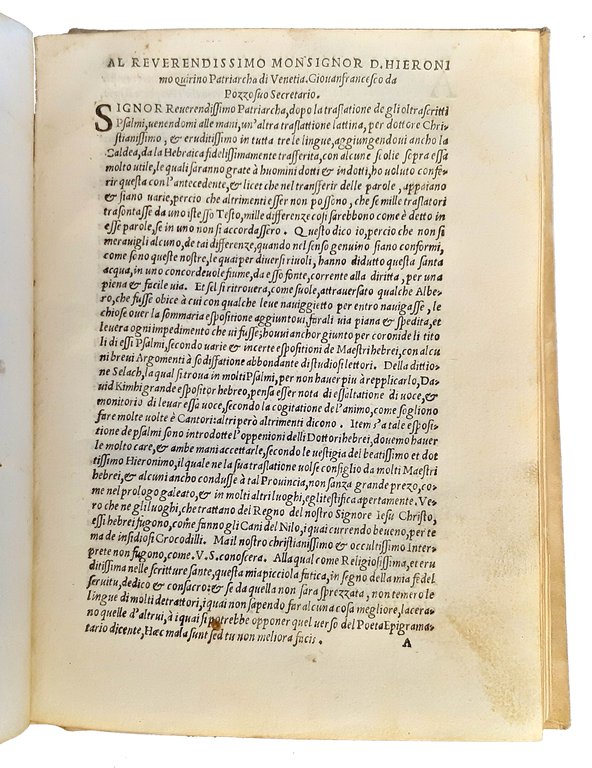 AL REVERENDISSIMO MONSIGNOR D. HIERONI
mo quirino Patriarcha di Venetia. Giouanfrancesco da
Pozzo suo Secretario.
SIGNOR Reuerendissimo Patriarcha, dopo la traslatione de gli oltrascritti
Psalmi, uenendomi alle mani, un'altra traslattione lattina, per dottore Chri-
stianissimo, & eruditissimo in tutta tre le lingue, aggiungendoui ancho la
Caldea, da la Hebraica fidelissimamente trasferita, con alcune scolie sepra essa
molto utile, le quali saranno grate à huomini dotti & indotti, ho uoluto confe-
rir questa con l'antecedente, & licet che nel transferir delle parole, appaiano
& siano uarie, percio che altrimenti esser non possono, che se mille traslatori
trasontasse da uno istesso Testo, mille differenze cosi sarebbono come è detto in
esse parole, se in uno non si accordassero. Questo dico io, percio che non si
merauigli alcuno, de tai differenze, quando nel senso genuino siano conformi,
come sono queste nostre, le quai per diuersi riuoli, hanno didutto questa santa
acqua, in uno concordeuole fiume, da esso fonte, corrente alla diritta, per una
piena & facile uia. Et sel si ritrouera, come suole, attrauersato qualche Albe-
ro, che fusse obice à cui con qualche leue nauiggietto per entro nauigasse, le
chiose ouer la sommaria espositione aggiuntoui, farali uia piana & spedita, et
leuera ogni impedimento che ui fusse; houui anchor giunto per coronide li tito
li di essi Psalmi, secondo uarie & incerte espositioni de Maestri hebrei, con alcu
ni breui Argomenti à sodisfatione abbondante di studiosi lettori. Della dittio-
ne Selach, la qual si troua in molti Psalmi, per non hauer piu à repplicarlo, Da-
uid Kimhi grande espositor hebreo, pensa esser nota di essaltatione di uoce, &
monitorio di leuar essa uoce, secondo la cogitatione del'animo, come sogliono
fare molte uolte è Cantori: altri però altrimenti dicono. Item s'a tale esposi-
tione de psalmi sono introdotte l'oppenioni delli Dottori hebrei, douemo hauer
le molto care, & ambe mani accettarle, secondo le uestigia del beatissimo et dot
tissimo Hieronimo, il quale ne la sua traslatione uolse consiglio da molti Maestri
hebrei, & alcuni ancho condusse à tal Prouincia, non sanza grande prezo, co-
me nel prologo galeato, & in molti altri luoghi, egli testifica apertamente. Ve-
ro che ne gli luoghi, che trattano del Regno del nostro Signore Iesu Christo,
essi hebrei fugono, come fanno gli Cani del Nilo, i quai currendo beueno, per te
ma de insidiosi Crocodilli. Ma il nostro christianissimo & occultissimo Inter-
prete non fugono, come. V. S. conoscera. Alla qual come Religiosissima, et eru
ditissima nelle scritture sante, questa mia picciola fatica, in segno della mia fedel
seruitu, dedico & consacro; & se da quella non sara sprezzata, non temero le
lingue di molti detrattori, i quai non sapendo far alcuna cosa megliore, lacera-
no quelle d'altrui, à i quai si potrebbe opponer quel uerso del Poeta Epigrama-
tario dicente, Hæc mala sunt sed tu non meliora facis.
A